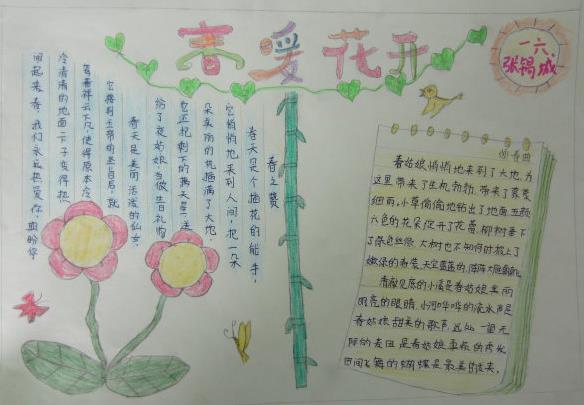 春暖花开
一六、
张锡城
春之赞
春天是个插花的能手,
它悄悄地来到人间,把一朵
朵美丽的花插满了大地.
也正把剩下的满天星送
给了夜姑娘,当做生日礼物
春天是美丽活泼的仙女.
它接到玉帝的圣旨后,就
驾着祥云下凡,使得原本冷
冷清清的地面一下子变得热
闹起来.春,我们永远热爱你,期盼你.
迎春曲
春姑娘悄悄地来到了大地,为
这里带来了生机勃勃,带来了蒙蒙
细雨,小草偷偷地钻出了地面.五颜
六色的花朵绽开了花蕾,柳树垂下
了绿色丝绦.大树也不知何时披上了
嫩绿的春装.天空蓝蓝的,阵阵大雁
清澈见底的小溪是春姑娘美丽
明亮的眼睛.小河哗哗的流水声是
春姑娘甜美的歌声.远处一望无
际的麦田是春姑娘的秀发.
田间飞舞的蝴蝶是最美的